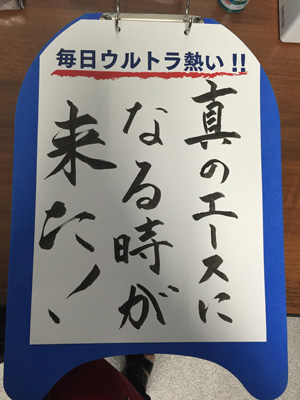 毎日ウルトラ熱い!!
真のエースに
なる時が
来た!